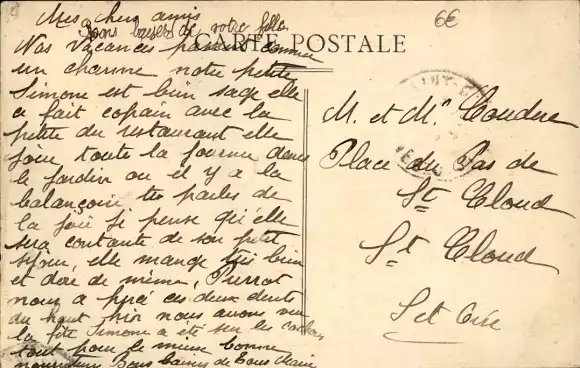 Mes chers amis
Bons baisers de votre fille
6€
CARTE POSTALE
Nos vacances passent comme
un charme notre petite
Simone est bien sage elle
a fait copain avec la
petite du restaurant elle
joue toute la journee dans
le jardin ou il y a la
balançoire tu parles de
la joie je pense qu'elle
sera contante de son petit
sejour, elle mange très bien
et dort de même, Pierrot
nous a percé ces deux dents
du haut hier nous avons vu
la fête Simone a été sur les
tout pour le mieux comme
nourriture Bons baisers de tous
M. et Me Coudere
Place du Pas de
St Cloud
St Cloud
S et Oise